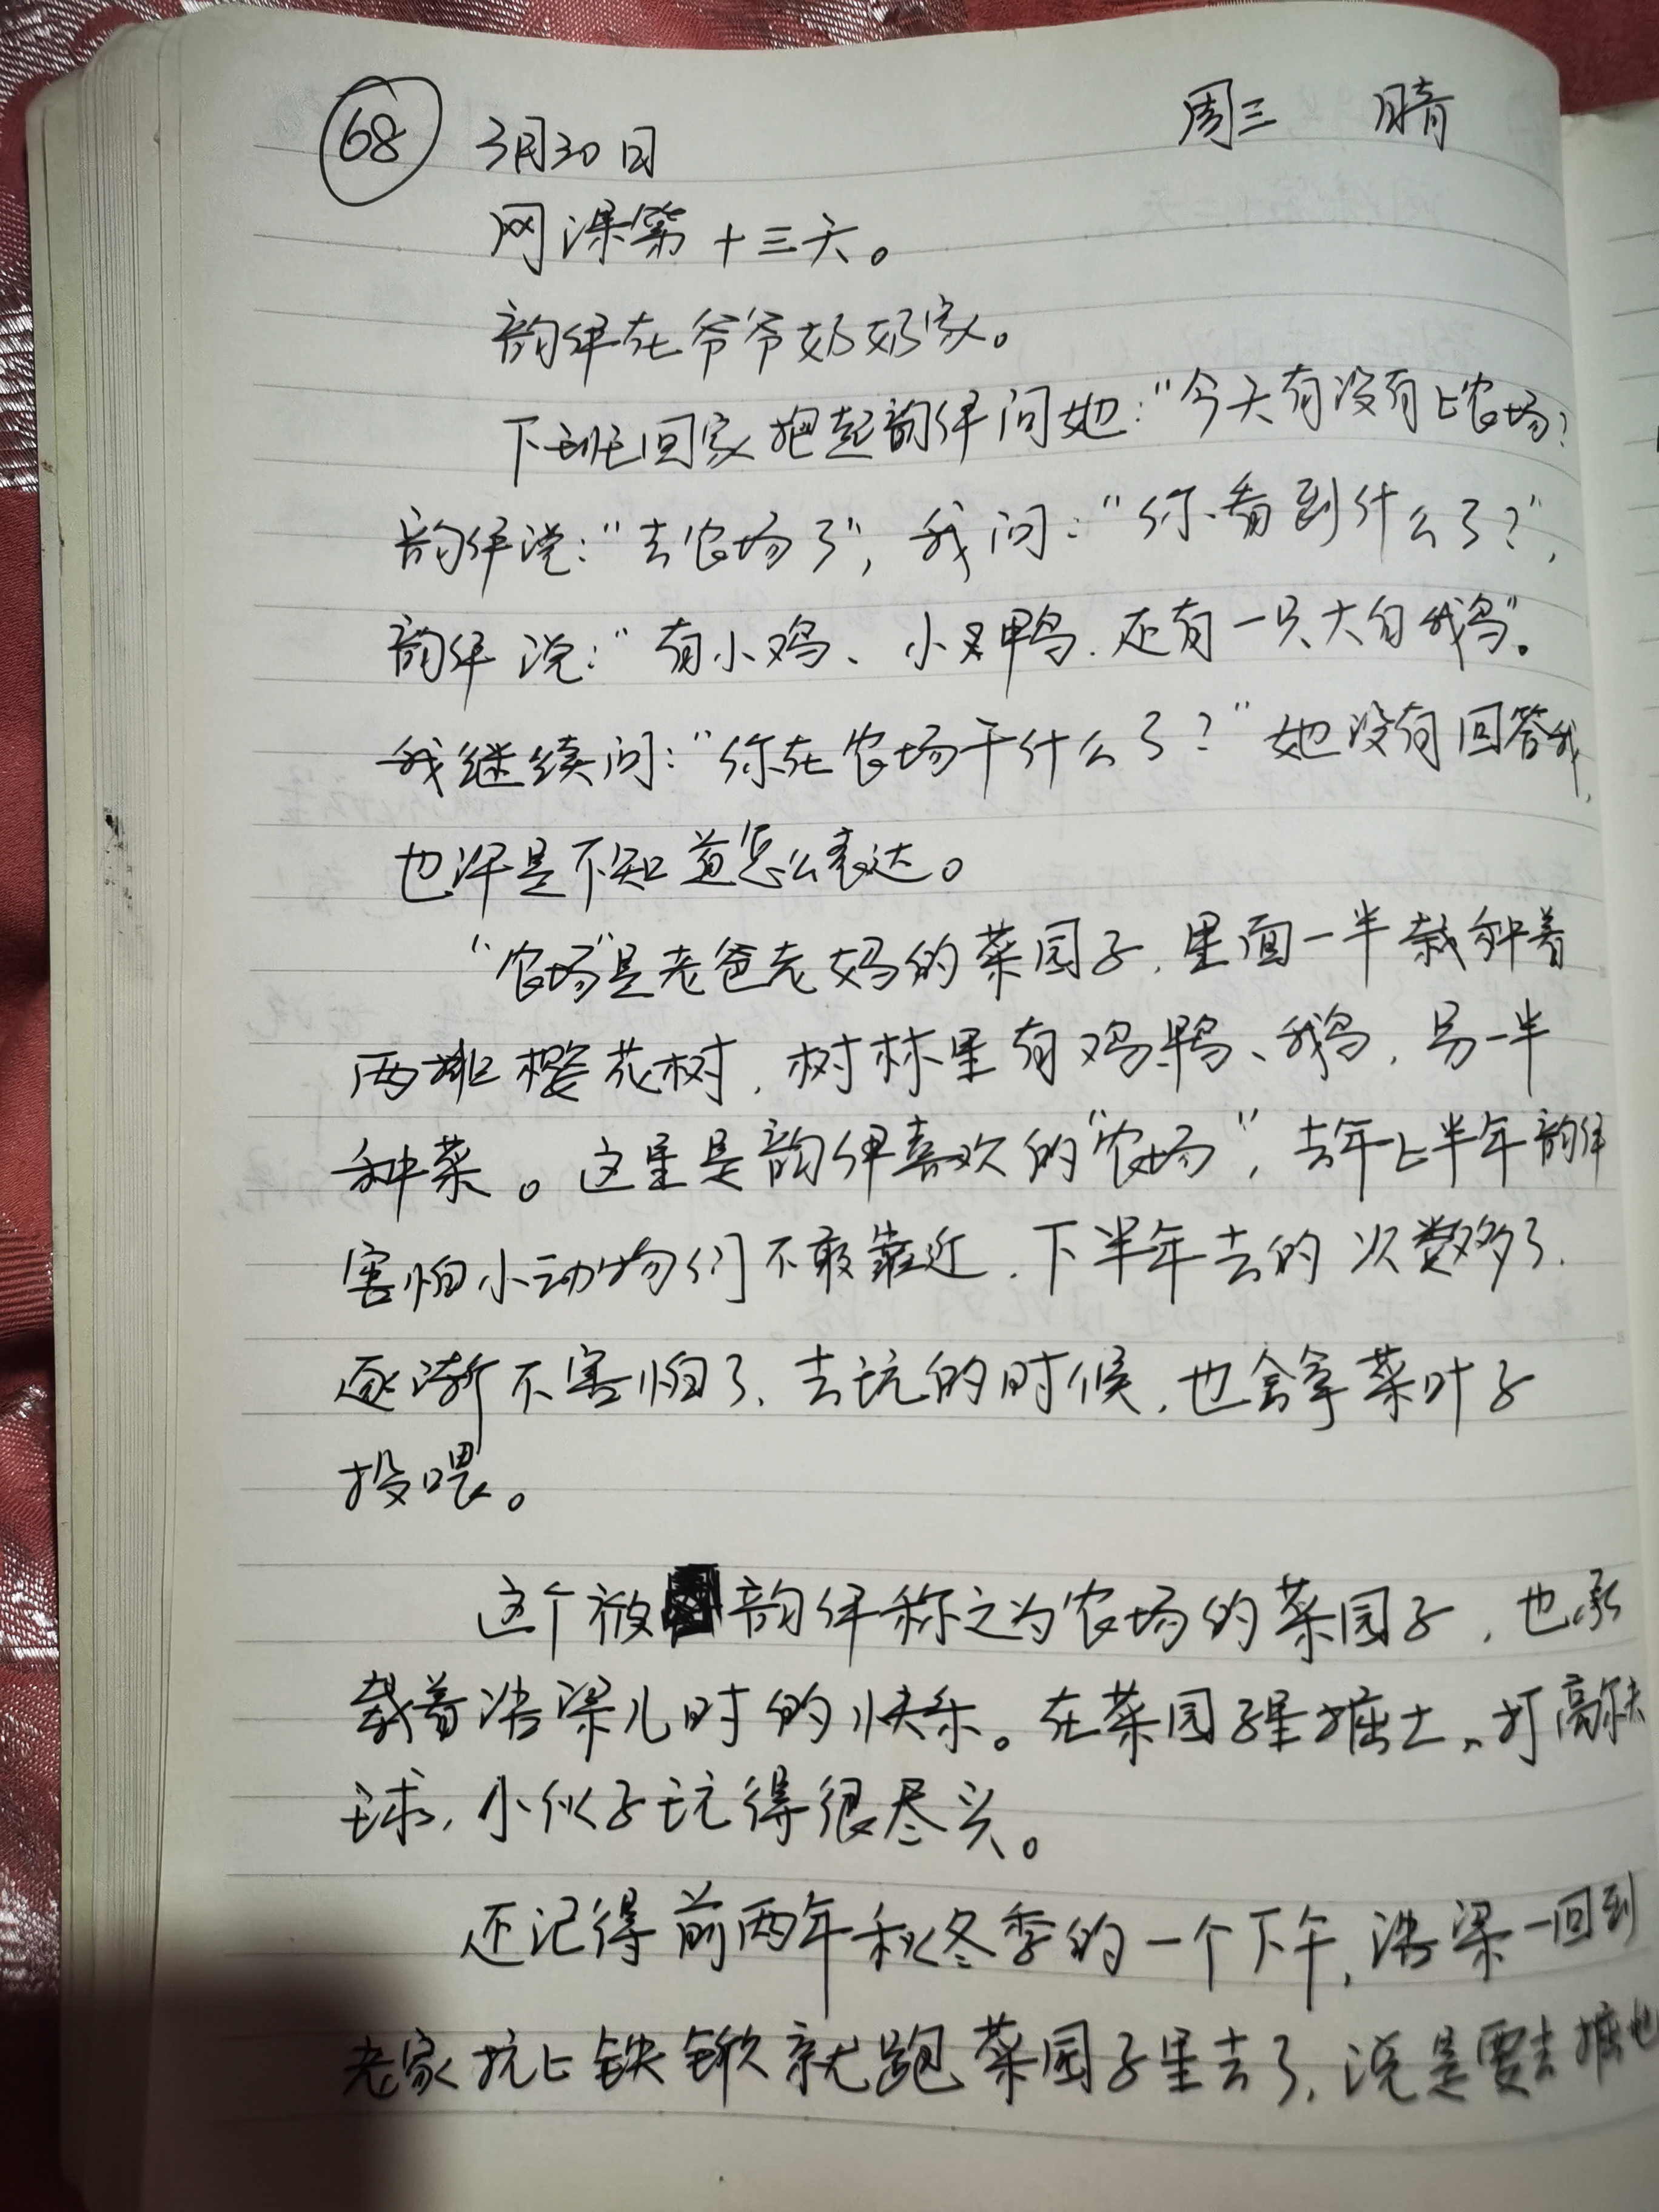 68 3月30日 周三 晴
网课第十三天。
韵伊在爷爷奶奶家。
下班回家抱起韵伊问她:"今天有没有上农场?
韵伊说:"去农场了",我问:"你看到什么了?",
韵伊说:"有小鸡、小鸭.还有一只大白鹅"。
我继续问:"你在农场干什么了?"她没有回答我,
也许是不知道怎么表达。
"农场"是老爸老妈的菜园子,里面一半栽种着
两排樱花树,树林里有鸡鸭、鹅,另一半
种菜。这里是韵伊喜欢的"农场",去年上半年韵伊
害怕小动物们不敢靠近.下半年去的次数多了.
逐渐不害怕了.去玩的时候,也会拿菜叶子
投喂。
这个被韵伊称之为农场的菜园子,也承
载着浩梁儿时的快乐。在菜园子里掘土、打高尔夫
球,小伙子玩得很尽兴。
还记得前两年秋冬季的一个下午,浩梁一回到
老家扛上铁锹就跑菜园子里去了,说是要去掘地